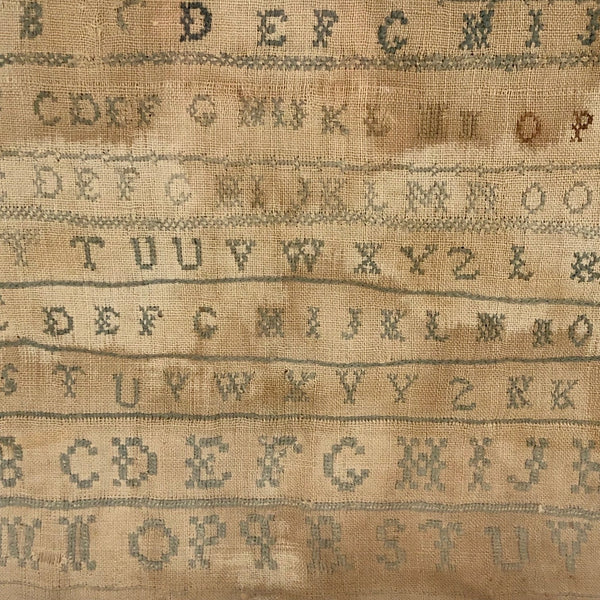 B C D E F G H I J
C D E F G H I J K L M N O P
C D E F G H I J K L M N O O
T T U U V W X Y Z L R
C D E F G H I J K L M N O
S T U V W X Y Y Z K K
B C D E F G H I J K
M N O P Q R S T U V